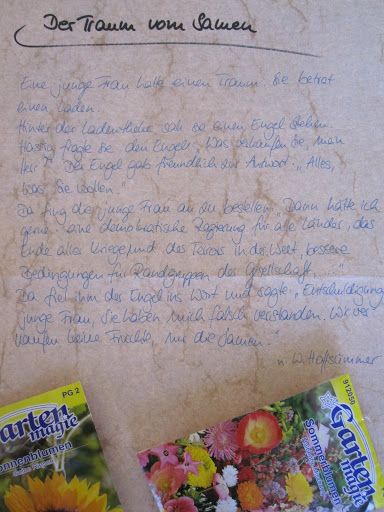 Der Traum vom Samen
Eine junge Frau hatte einen Traum. Sie betrat
einen Laden.
Hinter der Ladentheke sah sie einen Engel stehen.
Hastig fragte sie den Engel: „Was verkaufen Sie, mein
Herr?" Der Engel gab freundlich zur Antwort: „Alles,
was Sie wollen."
Da fing die junge Frau an zu bestellen: „Dann hätte ich
gerne eine demokratische Regierung für alle Länder, das
Ende aller Kriege und des Terrors in der Welt, bessere
Bedingungen für Randgruppen der Gesellschaft, ..."
Da fiel ihm der Engel ins Wort und sagte: „Entschuldigung
junge Frau, Sie haben mich falsch verstanden. Wir ver-
kaufen keine Früchte, nur die Samen."
n. W. Hoffsümmer
PG 2
Garten
magie
Sonnenblumen
912050
Garten
magie
Sommerblumen